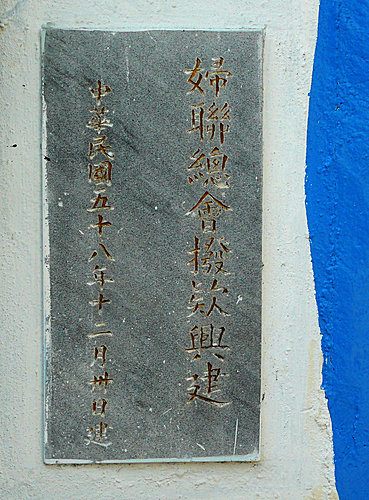 婦聯總會撥欵興建
中華民國五十八年十二月卅日建